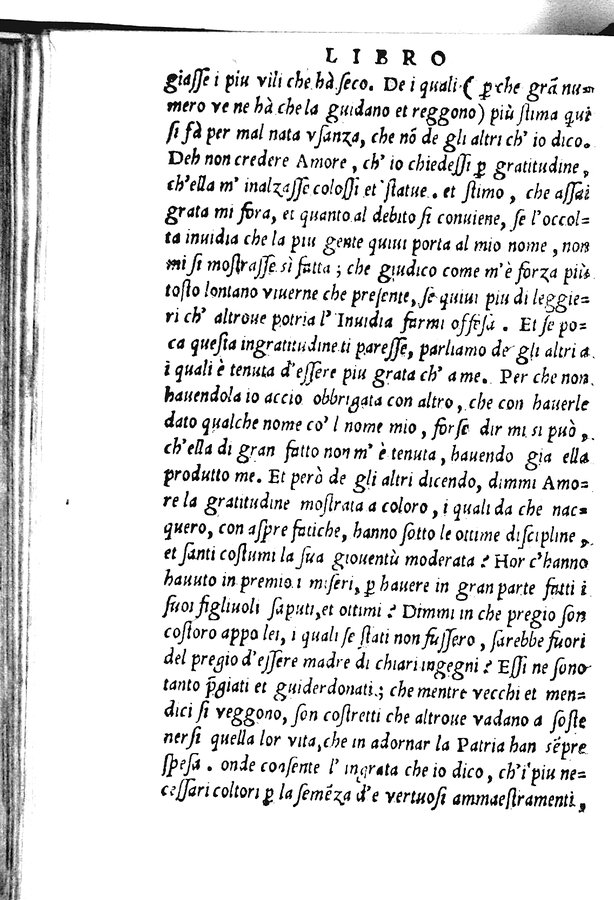 LIBRO
giaſſe i piu vili che hà ſeco. De i quali ( ꝑche grã nu-
mero ve ne hà che la guidano et reggono) più ſtima qui
ſi fà per mal nata vſanza, che nõ de gli altri ch' io dico.
Deh non credere Amore, ch' io chiedeſſi ꝑ gratitudine,
ch'ella m' inalzaſſe coloſſi et ſtatue. et ſtimo, che aſſai
grata mi fora, et quanto al debito ſi conuiene, ſe l'occol-
ta inuidia che la piu gente quiui porta al mio nome, non
mi ſi moſtraſſe sì fatta; che giudico come m'è forza più
toſto lontano viuerne che preſente, ſe quiui piu di leggie-
ri ch' altroue potria l' Inuidia farmi offeſa. Et ſe po-
ca queſta ingratitudine ti pareſſe, parliamo de gli altri a
i quali è tenuta d'eſſere piu grata ch' a me. Per che non
hauendola io accio obbrigata con altro, che con hauerle
dato qualche nome co' l nome mio, forſe dir mi si può,
ch'ella di gran fatto non m' è tenuta, hauendo gia ella
produtto me. Et però de gli altri dicendo, dimmi Amo-
re la gratitudine moſtrata a coloro, i quali da che nac-
quero, con aſpre fatiche, hanno ſotto le ottime diſcipline,
et ſanti coſtumi la ſua giouentù moderata? Hor c'hanno
hauuto in premio i miſeri, ꝑ hauere in gran parte fatti i
ſuoi figliuoli ſaputi, et ottimi? Dimmi in che pregio ſon
coſtoro appo lei, i quali ſe ſtati non fuſſero, ſarebbe fuori
del pregio d'eſſere madre di chiari ingegni? Eſſi ne ſono
tanto p̃giati et guiderdonati; che mentre vecchi et men-
dici ſi veggono, ſon coſtretti che altroue vadano a ſoſte
nerſi quella lor vita, che in adornar la Patria han sẽpre
ſpeſa. onde conſente l' ingrata che io dico, ch'i piu ne-
ceſſari coltori ꝑ la ſemẽza d'e vertuoſi ammaeſtramenti,